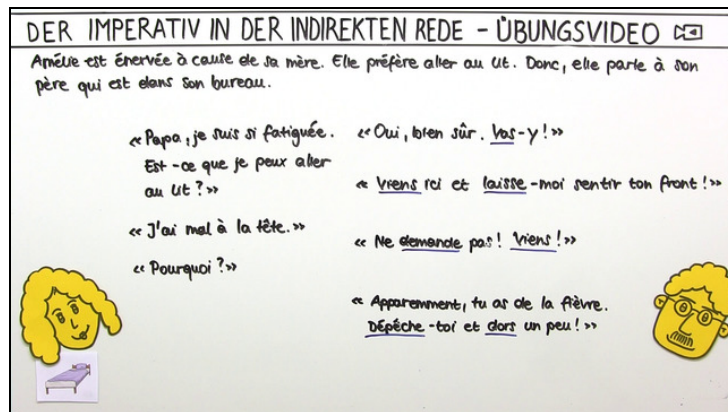 DER IMPERATIV IN DER INDIREKTEN REDE - ÜBUNGSVIDEO
Amélie est énervée à cause de sa mère. Elle préfère aller au lit. Donc, elle parle à son
père qui est dans son bureau.
«Papa, je suis si fatiguée.
Est-ce que je peux aller
au lit?»
«Oui, bien sûr. Vas-y!»
«Viens ici et laisse-moi sentir ton front!»
«J'ai mal à la tête.»
«Ne demande pas! Viens!»
«Pourquoi?»
«Apparemment, tu as de la fièvre.
Dépêche-toi et dors un peu!»